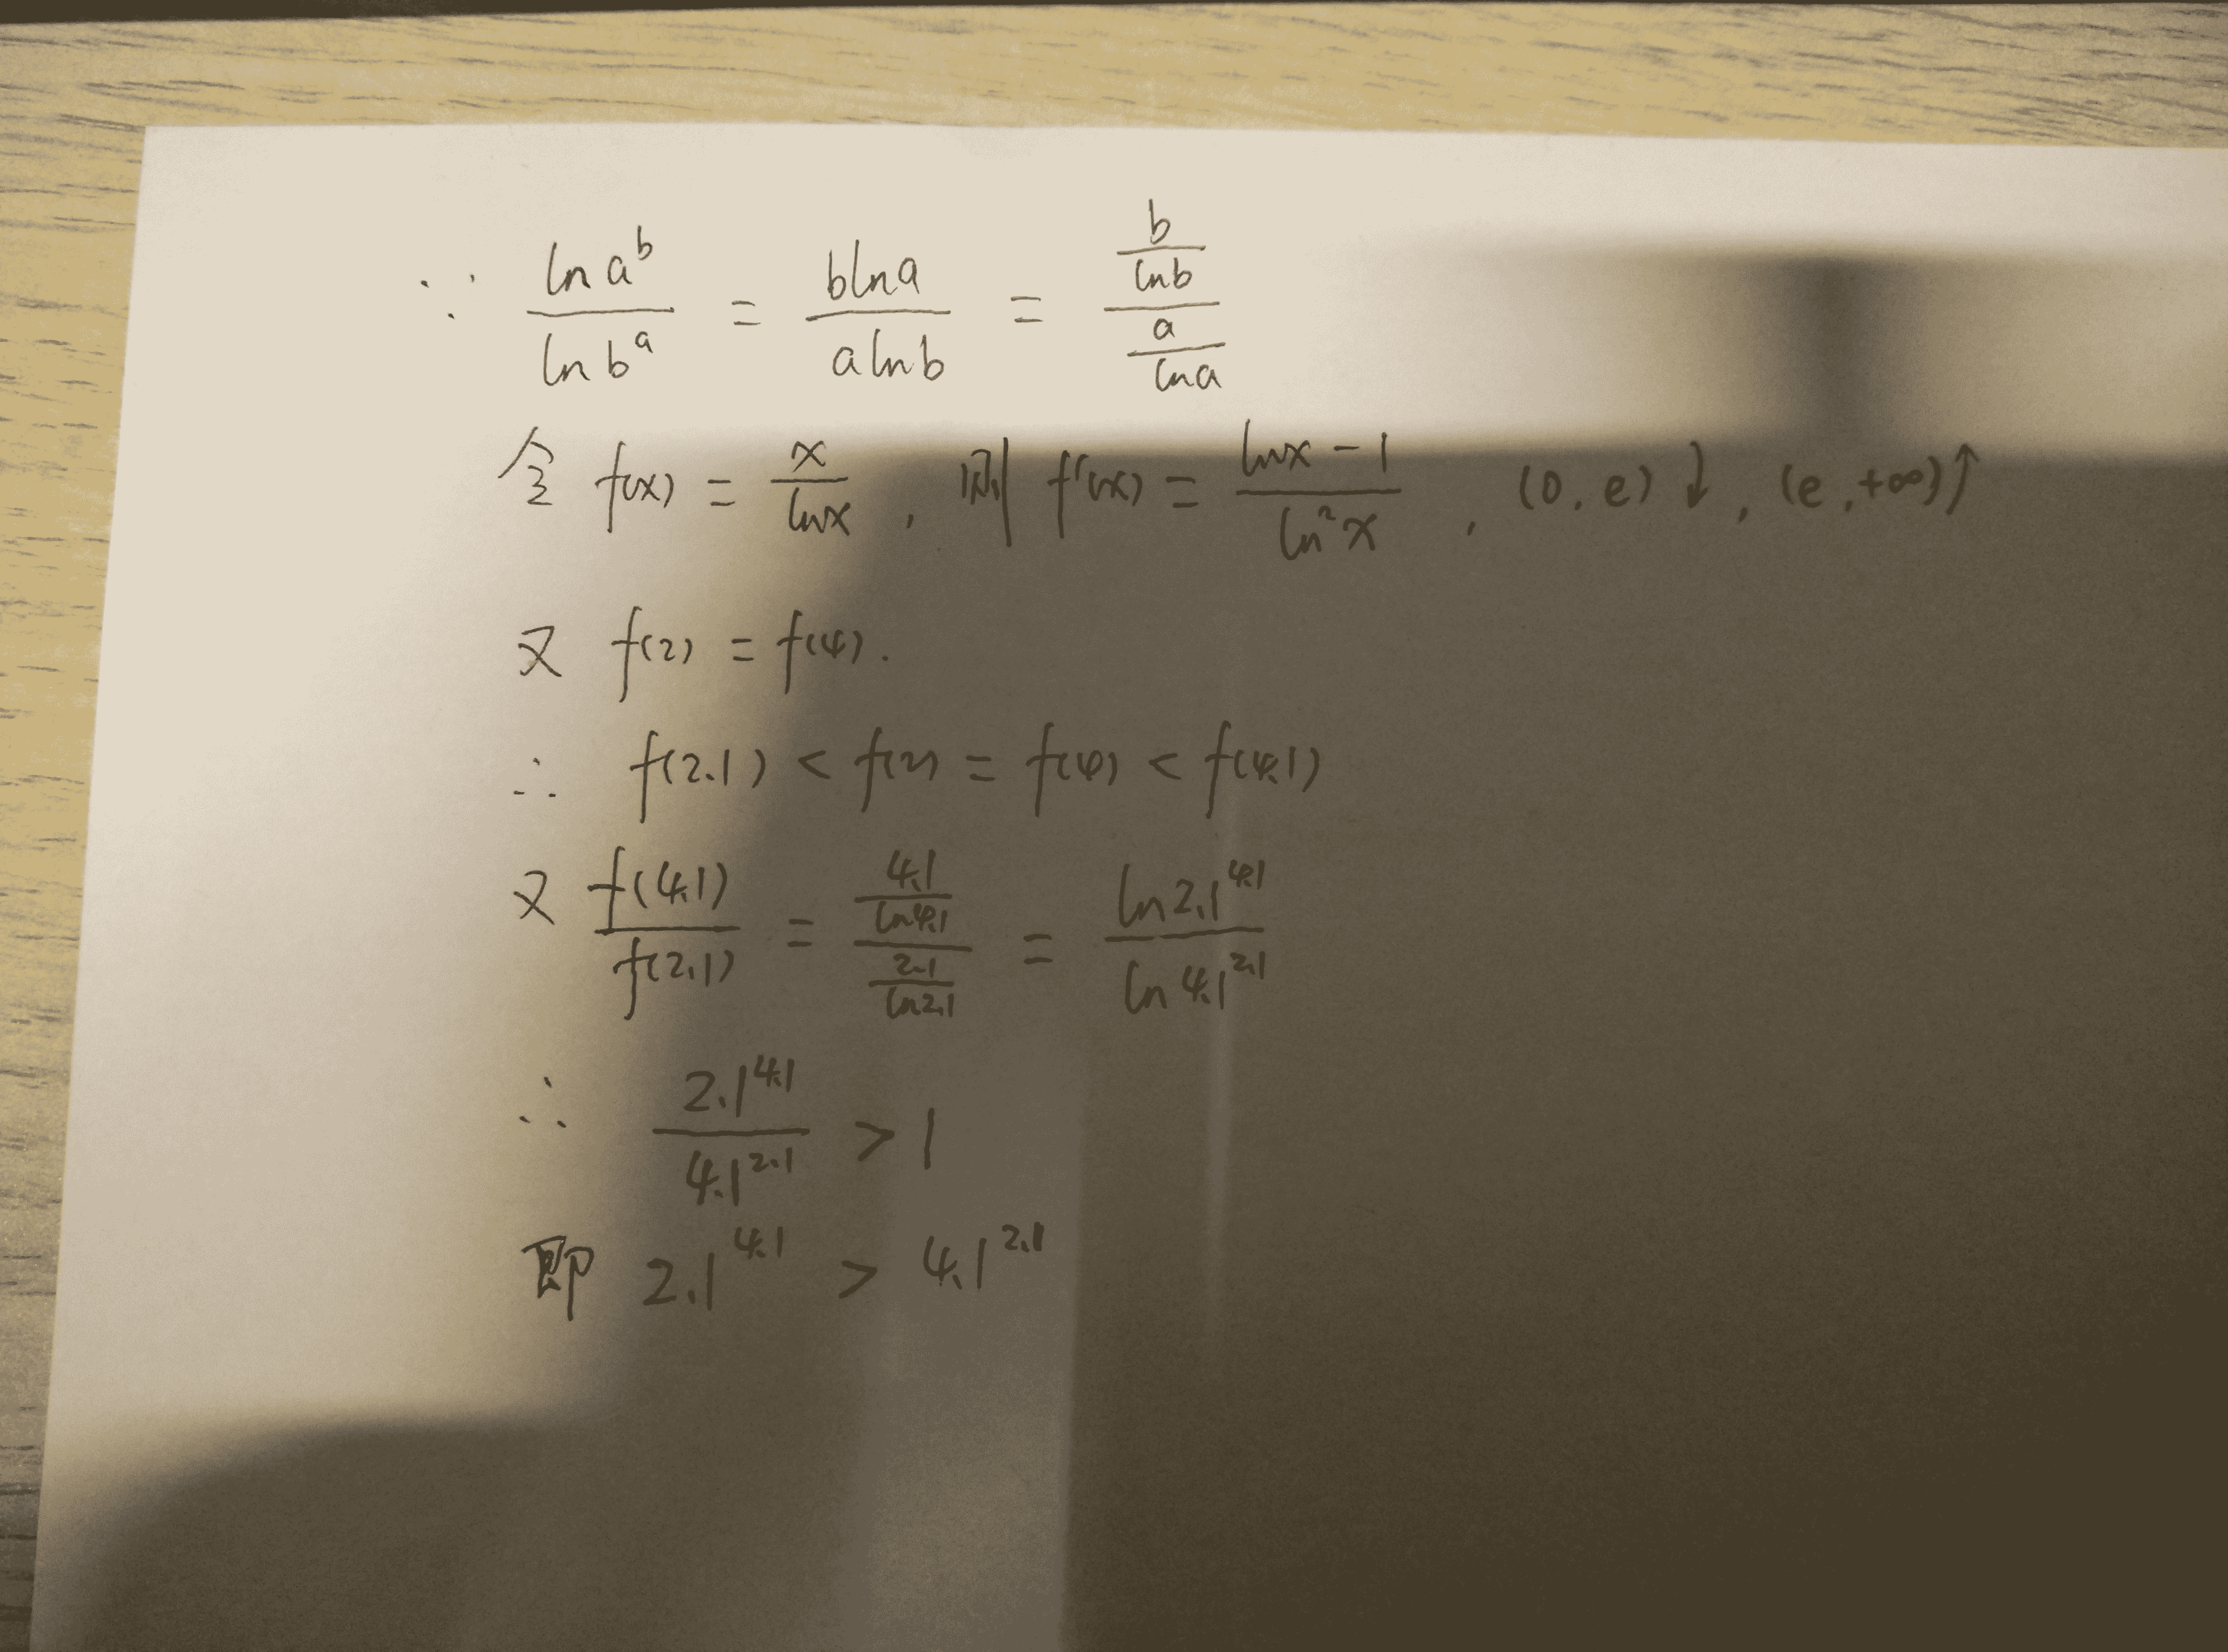 ∵ \frac{\ln a^b}{\ln b^a} = \frac{b\ln a}{a\ln b} = \frac{\frac{b}{\ln b}}{\frac{a}{\ln a}}
令 f(x) = \frac{x}{\ln x}, 则 f'(x) = \frac{\ln x - 1}{\ln^2 x}, (0, e)↓, (e, +∞)↑
又 f(2) = f(4).
∴ f(2.1) < f(2) = f(4) < f(4.1)
又 \frac{f(4.1)}{f(2.1)} = \frac{\frac{4.1}{\ln 4.1}}{\frac{2.1}{\ln 2.1}} = \frac{\ln 2.1^{4.1}}{\ln 4.1^{2.1}}
∴ \frac{2.1^{4.1}}{4.1^{2.1}} > 1
即 2.1^{4.1} > 4.1^{2.1}